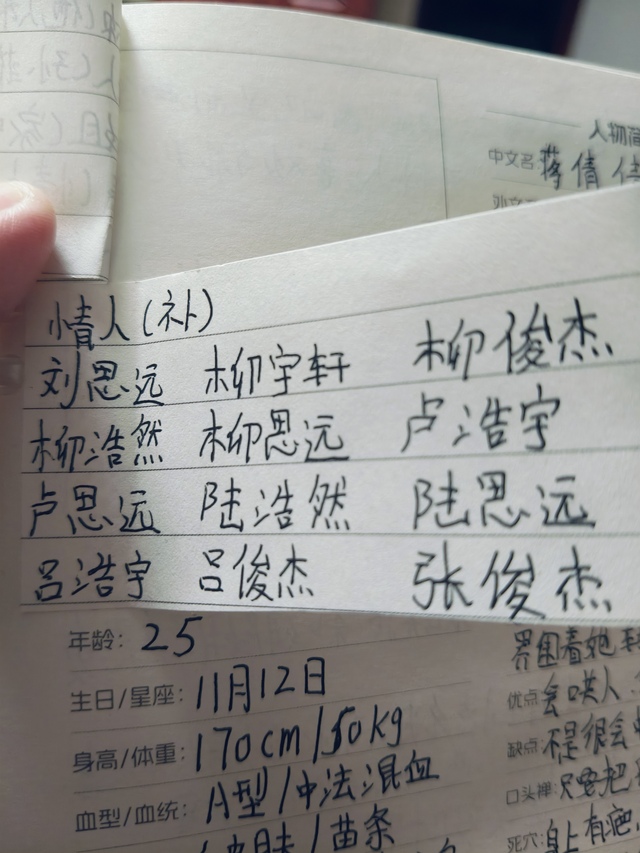 人物简
中文名: 蒋倩倩
情人(补)
刘思远 柳宇轩 柳俊杰
柳浩然 柳思远 卢浩宇
卢思远 陆浩然 陆思远
吕浩宇 吕俊杰 张俊杰
年龄: 25
生日/星座: 11月12日
身高/体重: 170cm/50kg
血型/血统: A型/中法混血
皮肤/苗条
界围着她
优点: 会哄人
缺点: 不是很会
口头禅: 只要把
死穴: 身上有疤